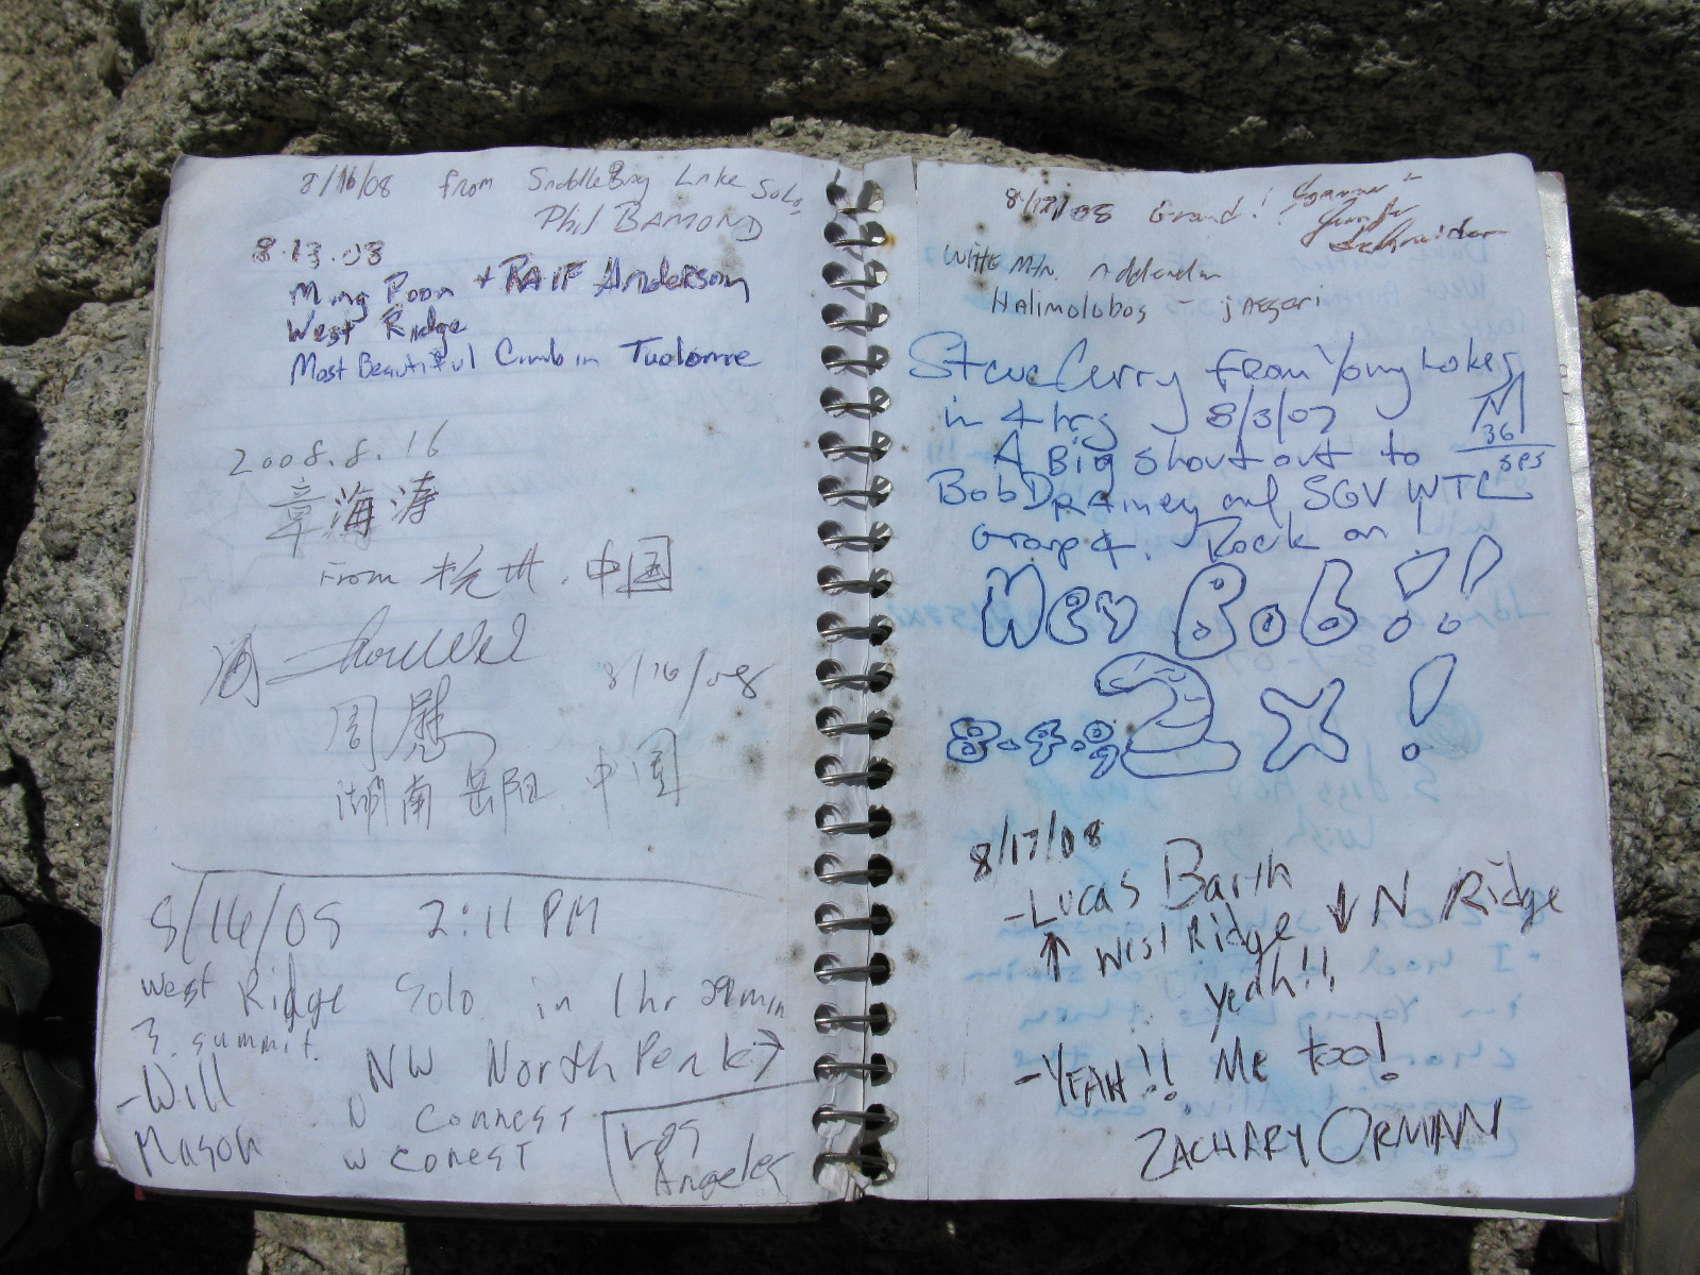 8/16/08 from SaddleBag Lake Solo,
Phil BAMOND
8.13.08
Ming Poon + RAIF Anderson
West Ridge
Most Beautiful Climb in Tuolomne
2008.8.16
章海涛
From 杭州.中国
8/16/08
周慰
湖南岳阳.中国
8/16/08 2:11 PM
West Ridge Solo in 1hr 29min
3. summit.
NW North Peak →
-Will
Mason
N Conness
W Coness
Los
Angeles
8/17/08 Grand!
Schneider
White Mtn.
Halimolobos - jaegeri
Steve Curry from Young Lakes
in 4 hrs 8/3/07
M
36
SPS
A Big Shout out to
Bob Dramey and SGV WTC
Group 4. Rock on!
Hey Bob!!
2x!
8/17/08
-Lucas Barth
↑ West Ridge ↓ N Ridge
Yeah!!
-YEAH!! Me too!
ZACHARY ORMAN